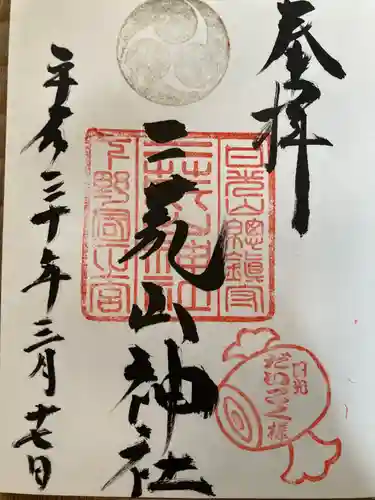 奉拝
日光山総鎮守
二荒山神社
下野国一之宮
二荒山神社
日光
だいこく様
平成三十年三月十七日